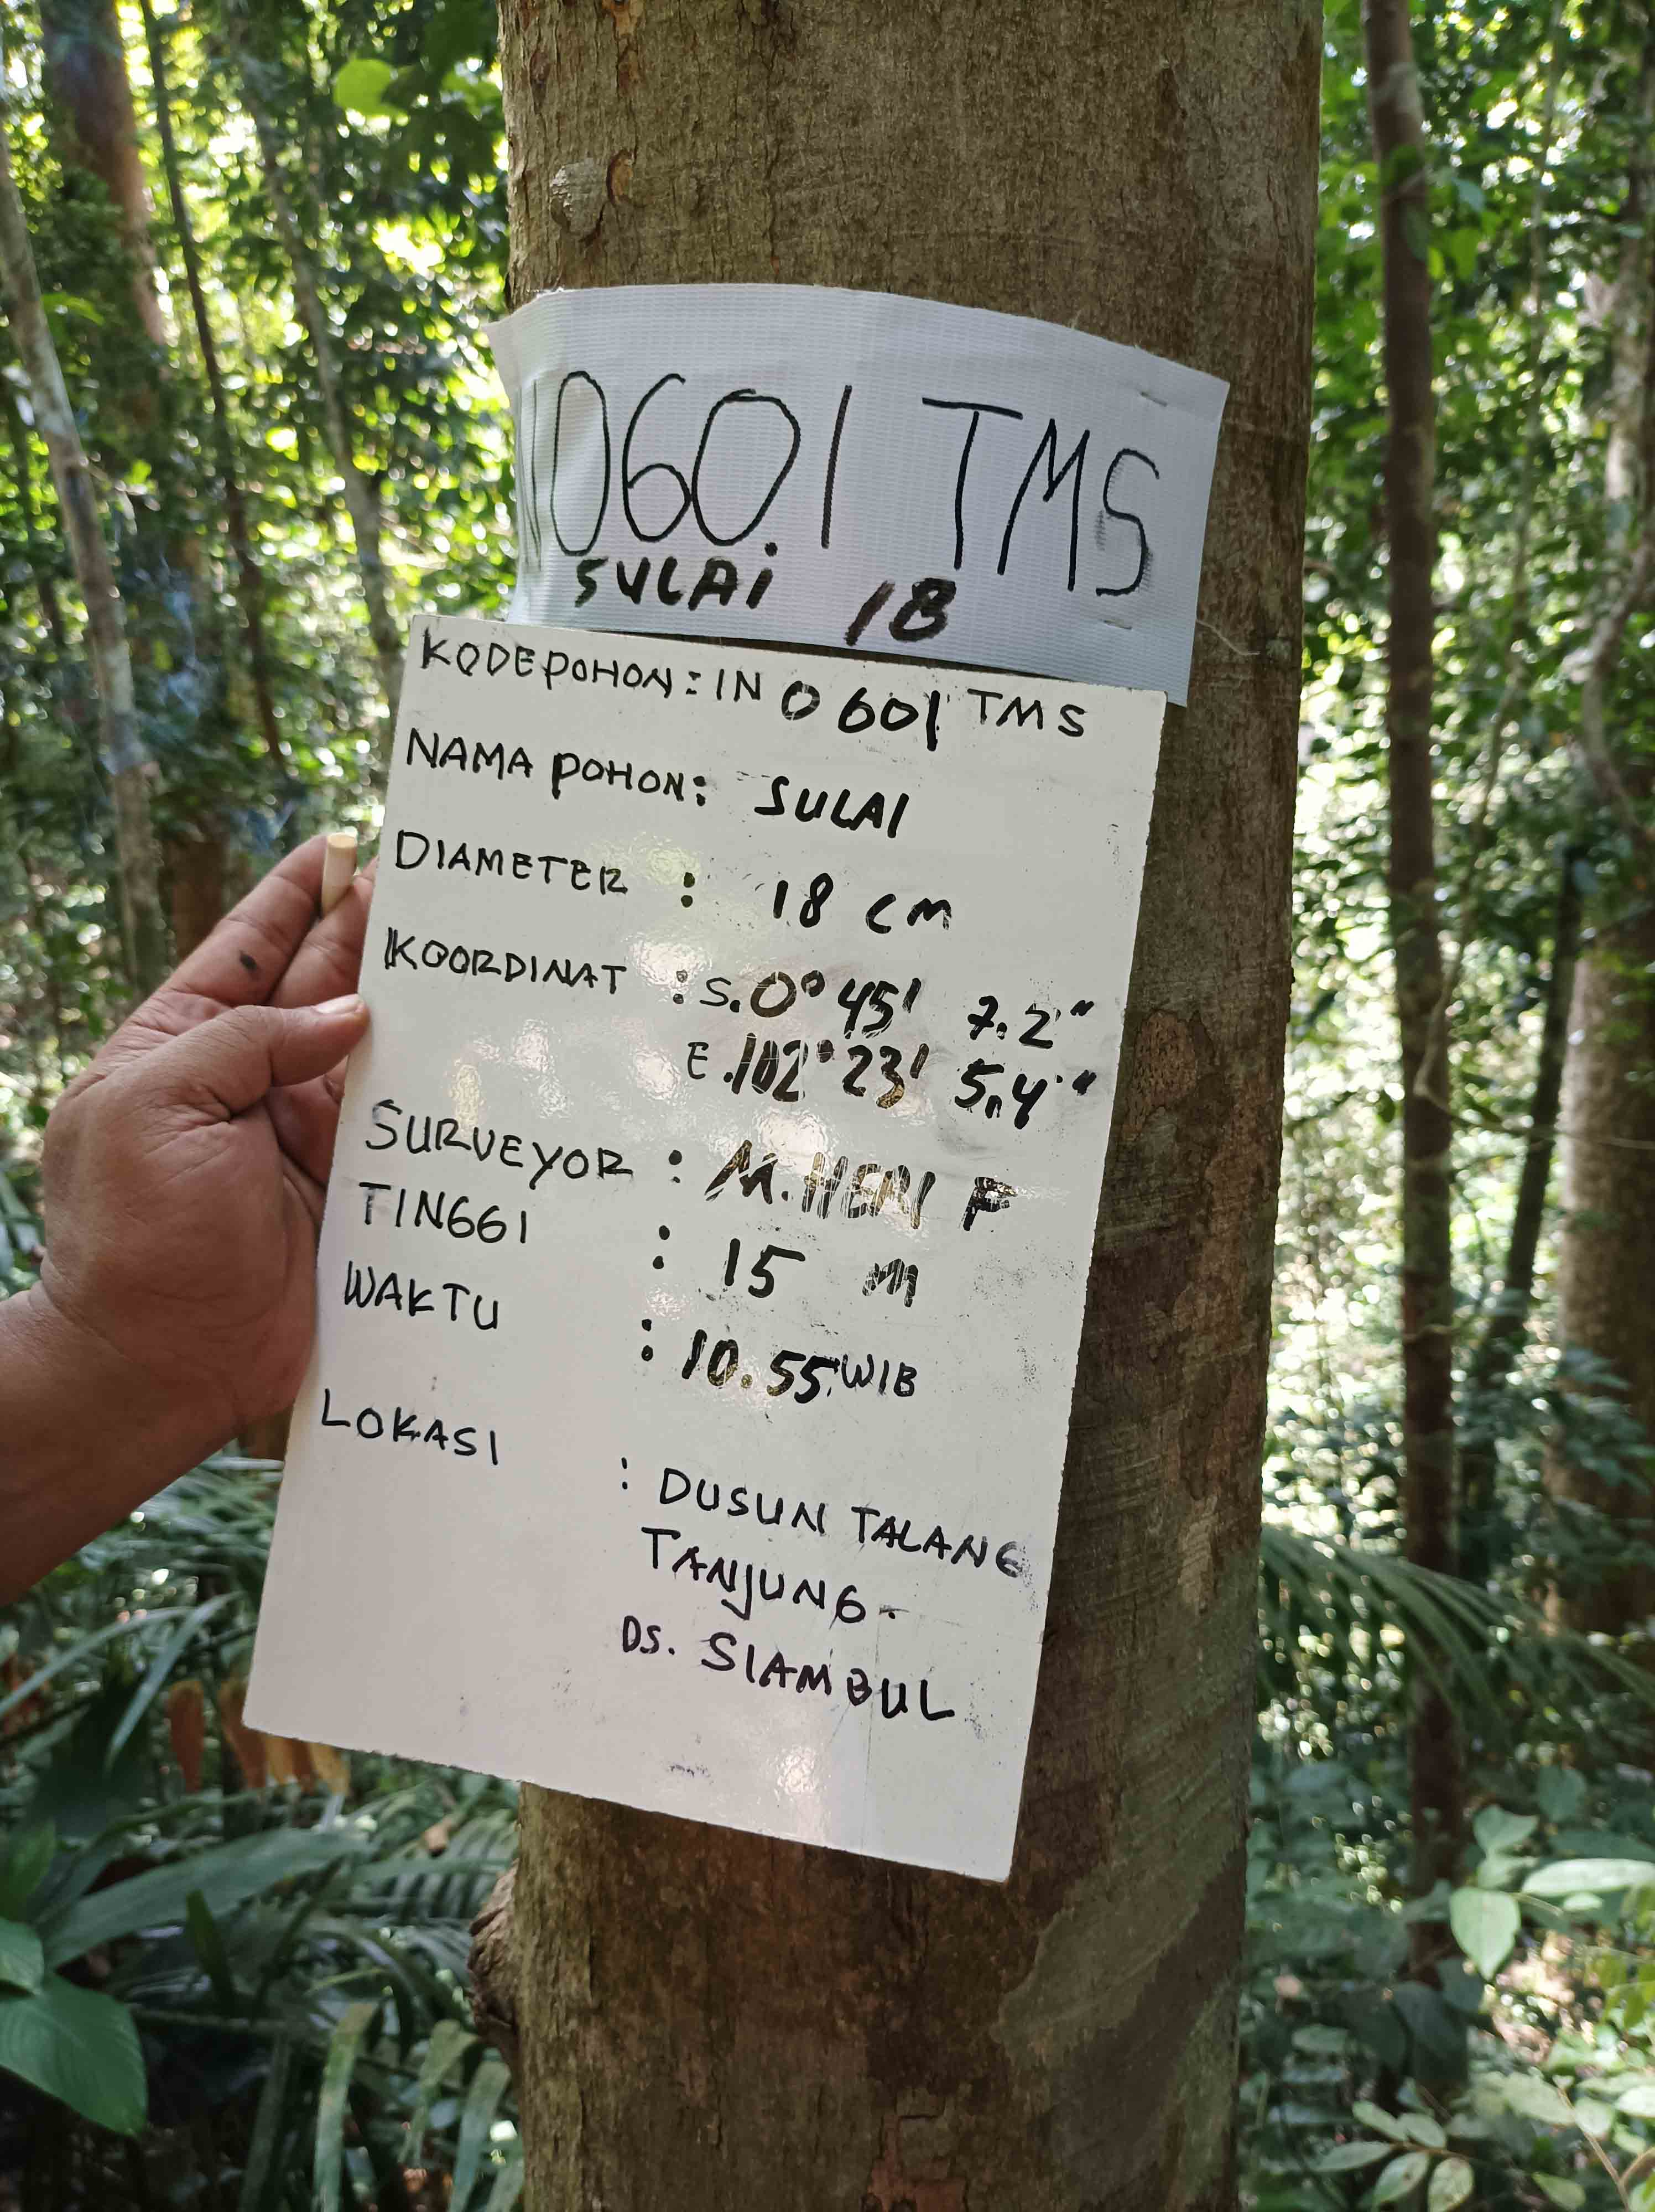 N0601 TMS
SULAi 18
KODE POHON : IN 0601 TMS
NAMA POHON : SULAI
DIAMETER : 18 CM
KOORDINAT : S. 0° 45' 7.2"
E. 102° 23' 5,4"
SURVEYOR : M. HERI F
TINGGI : 15 M
WAKTU : 10.55 WIB
LOKASI : DUSUN TALANG
TANJUNG.
DS. SIAMBUL